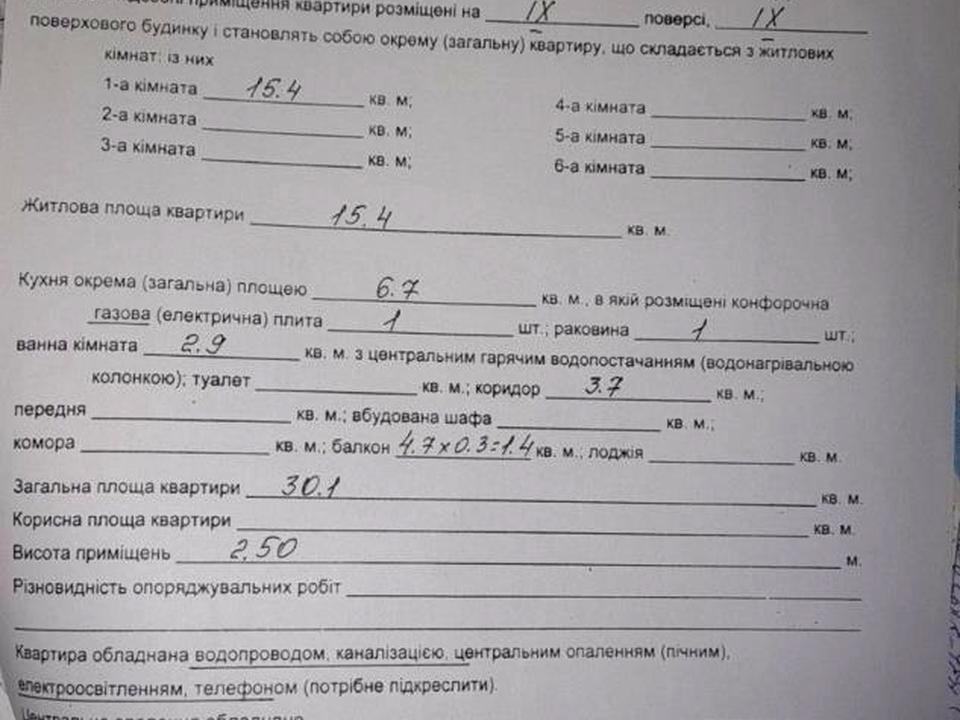 приміщення квартири розміщені на IX поверсі, IX
поверхового будинку і становлять собою окрему (загальну) квартиру, що складається з житлових
кімнат: із них
1-а кімната 15.4 кв. м; 4-а кімната кв. м;
2-а кімната кв. м; 5-а кімната кв. м;
3-а кімната кв. м; 6-а кімната кв. м;
Житлова площа квартири 15.4 кв. м.
Кухня окрема (загальна) площею 6.7 кв. м., в якій розміщені конфорочна
газова (електрична) плита 1 шт.; раковина 1 шт.;
ванна кімната 2.9 кв. м. з центральним гарячим водопостачанням (водонагрівальною
колонкою); туалет кв. м.; коридор 3.7 кв. м.;
передня кв. м.; вбудована шафа кв. м.;
комора кв. м.; балкон 4.7 x 0.3 = 1.4 кв. м.; лоджія кв. м.
Загальна площа квартири 30.1 кв. м.
Корисна площа квартири кв. м.
Висота приміщень 2,50 м.
Різновидність опоряджувальних робіт
Квартира обладнана водопроводом, каналізацією, центральним опаленням (пічним),
електроосвітленням, телефоном (потрібне підкреслити).